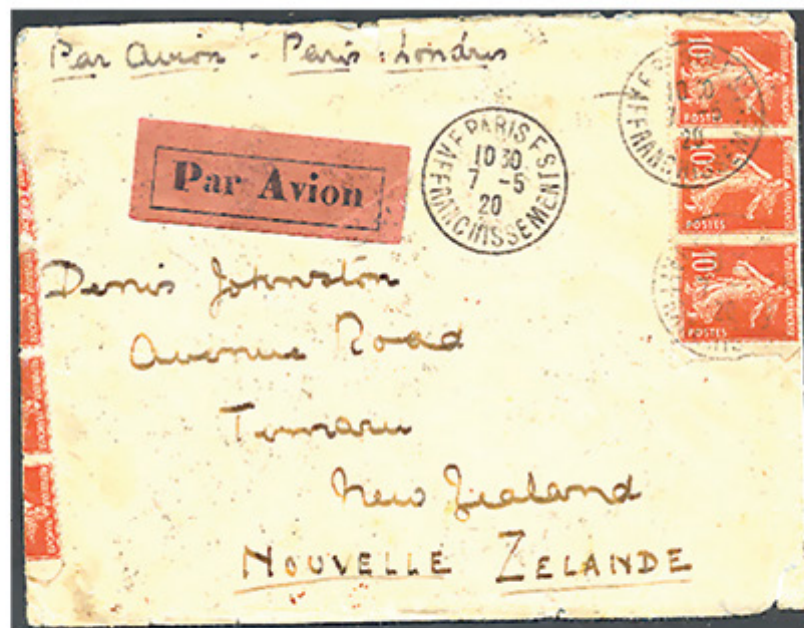 Par Avion - Paris : Londres
Par Avion
PARIS
10 30
7 -5
20
AFFRANCHISSEMENTS
10c
POSTES
10c
POSTES
10c
POSTES
10 30
20
AFFRANCHISSEM
Denis Johnston
Avenue Road
Timaru
New Zealand
NOUVELLE ZELANDE